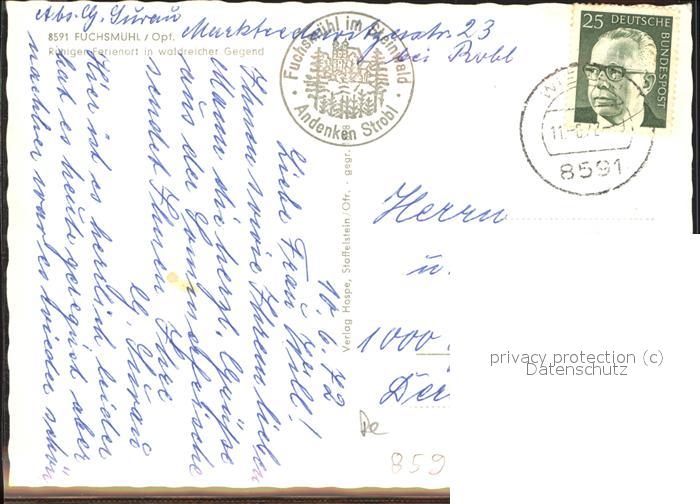 Abs. G. Surau
Marktredwitzerstr. 23
bei Probl
8591 FUCHSMÜHL / Opf.
Ruhiger Ferienort in waldreicher Gegend
Fuchsmühl im Steinwald
Andenken Strobl
25 DEUTSCHE BUNDESPOST
11.-6.72-
8591
10. 6. 72
Liebe Frau Will!
Ihnen sowie Ihrem lieben
Mann die herzl. Grüße
aus der Sommerfrische
sendet Ihnen Ihre
G. Surau
Hier ist es herrlich leider
hat es heute geregnet aber
nachher war es wieder schön
Verlag Hospe, Staffelstein/Ofr. - gegr.
Herrn
u.
1000
De
859
privacy protection (c)
Datenschutz